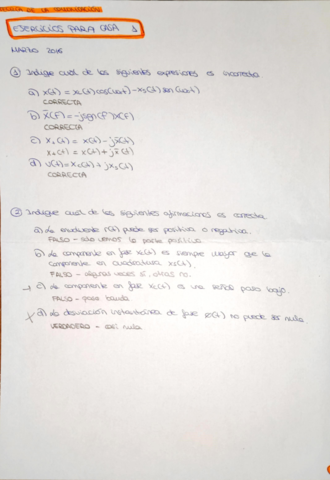 DE LA
EJERCICIOS PARA CASA 1
MARZO 2016
① Indique cual de las siguientes expresiones es incorrecta
a) x(t) = xc(t) cos(ω0t) - xs(t) sen(ω0t)
CORRECTA
b) X̂(f) = -jsgn(f) X(f)
CORRECTA
c) X+(t) = x(t) - jx̂(t)
X+(t) = x(t) + jx̂(t)
d) v(t) = xc(t) + jxs(t)
CORRECTA
② Indique cual de las siguientes afirmaciones es correcta
a) La envolvente r(t) puede ser positiva o negativa.
FALSO - sólo vemos la parte positiva.
b) La componente en fase xc(t) es siempre mayor que la
componente en cuadratura xs(t).
FALSO - algunas veces sí, otras no.
c) La componente en fase xc(t) es una señal paso bajo.
FALSO - paso banda
d) La desviación instantánea de fase φ(t) no puede ser nula
VERDADERO - nula